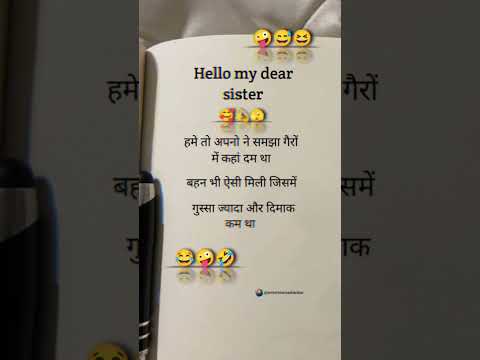 Hello my dear
sister
हमे तो अपनो ने समझा गैरों
में कहां दम था
बहन भी ऐसी मिली जिसमें
गुस्सा ज्यादा और दिमाक
कम था